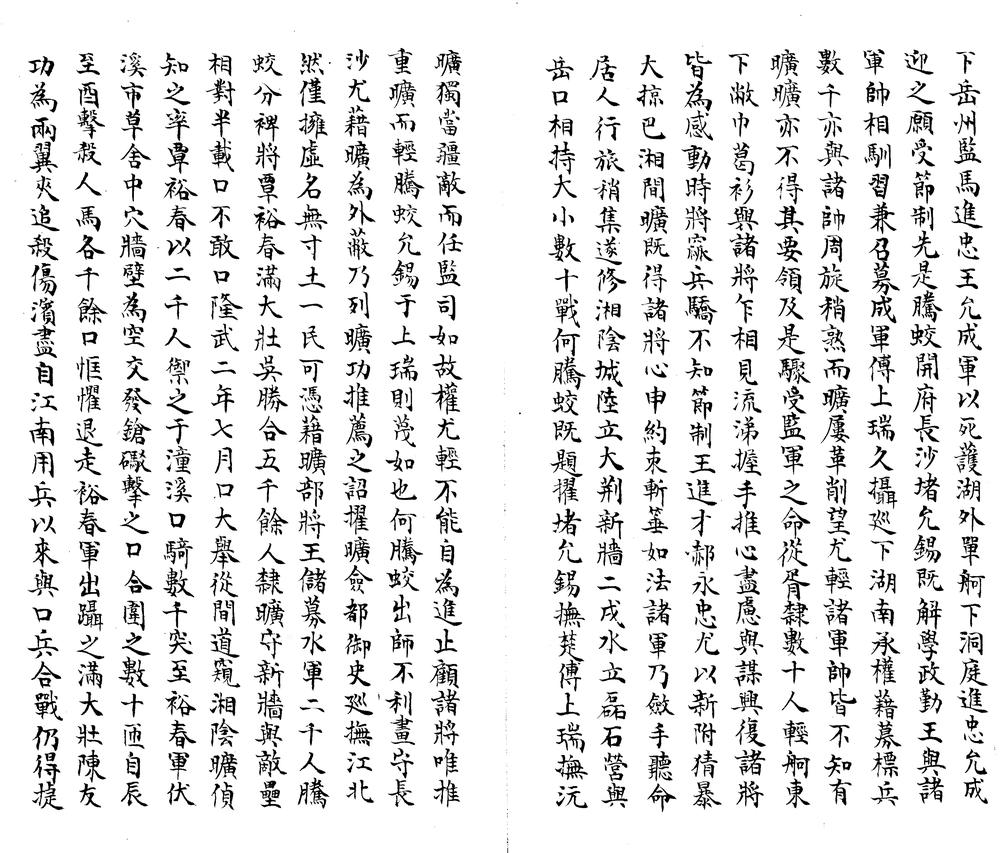 下岳州監馬進忠王允成軍以死護湖外單舸下洞庭進忠允成
迎之願受節制先是騰蛟開府長沙堵允錫既解學政勤王與諸
軍帥相馴習兼召募成軍傅上瑞久攝巡下湖南承權藉募標兵
數千亦與諸帥周旋稍熟而曠屢革削望尤輕諸軍帥皆不知有
曠曠亦不得其要領及是驟受監軍之命從胥隸數十人輕舸東
下敝巾葛衫與諸將乍相見流涕握手推心盡慮與謀興復諸將
皆為感動時將寡兵驕不知節制王進才郝永忠尤以新附猜暴
大掠巴湘間曠既得諸將心申約束斬箠如法諸軍乃斂手聽命
居人行旅稍集遂修湘陰城陸立大荆新牆二戍水立磊石營與
岳口相持大小數十戰何騰蛟既題擢堵允錫撫楚傅上瑞撫沅
曠獨當疆敵而任監司如故權尤輕不能自為進止顧諸將唯推
重曠而輕騰蛟允錫于上瑞則蔑如也何騰蛟出師不利畫守長
沙尤藉曠為外蔽乃列曠功推薦之詔擢曠僉都御史巡撫江北
然僅擁虛名無寸土一民可憑藉曠部將王儲募水軍二千人騰
蛟分裨將覃裕春滿大壯吳勝合五千餘人隸曠守新牆與敵壘
相對半載口不敢口隆武二年七月口大舉從間道窺湘陰曠偵
知之率覃裕春以二千人禦之于潼溪口騎數千突至裕春軍伏
溪市草舍中穴牆壁為空交發鎗礮擊之口合圍之數十匝自辰
至酉擊殺人馬各千餘口恇懼退走裕春軍出躡之滿大壯陳友
功為兩翼夾追殺傷濱盡自江南用兵以來與口兵合戰仍得挺